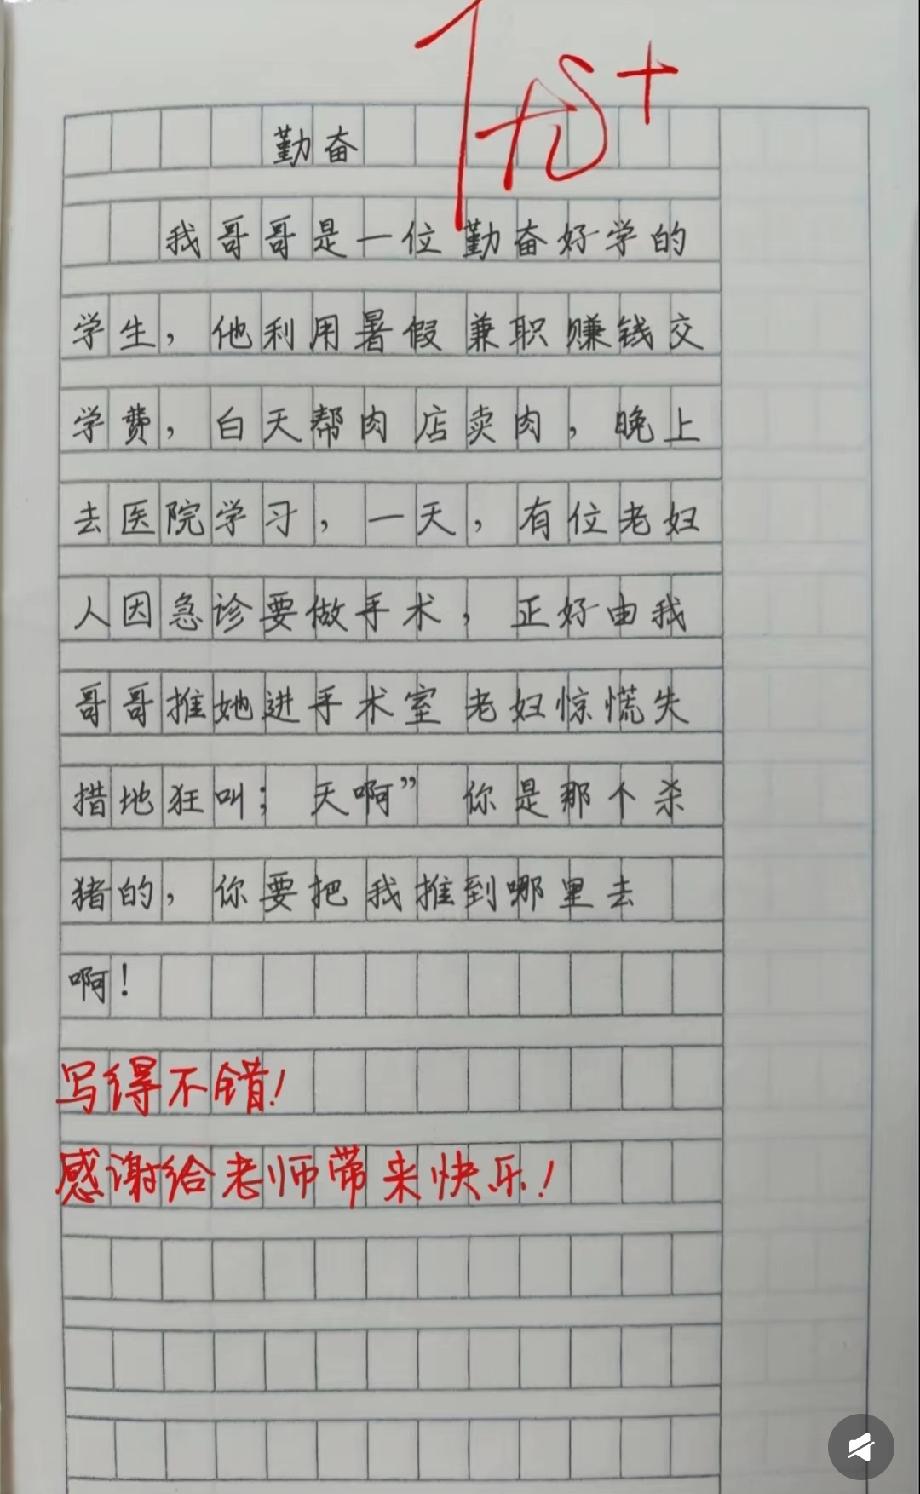 优+
勤奋
我哥哥是一位勤奋好学的
学生，他利用暑假兼职赚钱交
学费，白天帮肉店卖肉，晚上
去医院学习，一天，有位老妇
人因急诊要做手术，正好由我
哥哥推她进手术室老妇惊慌失
措地狂叫；天啊”你是那个杀
猪的，你要把我推到哪里去
啊！
写得不错！
感谢给老师带来快乐！